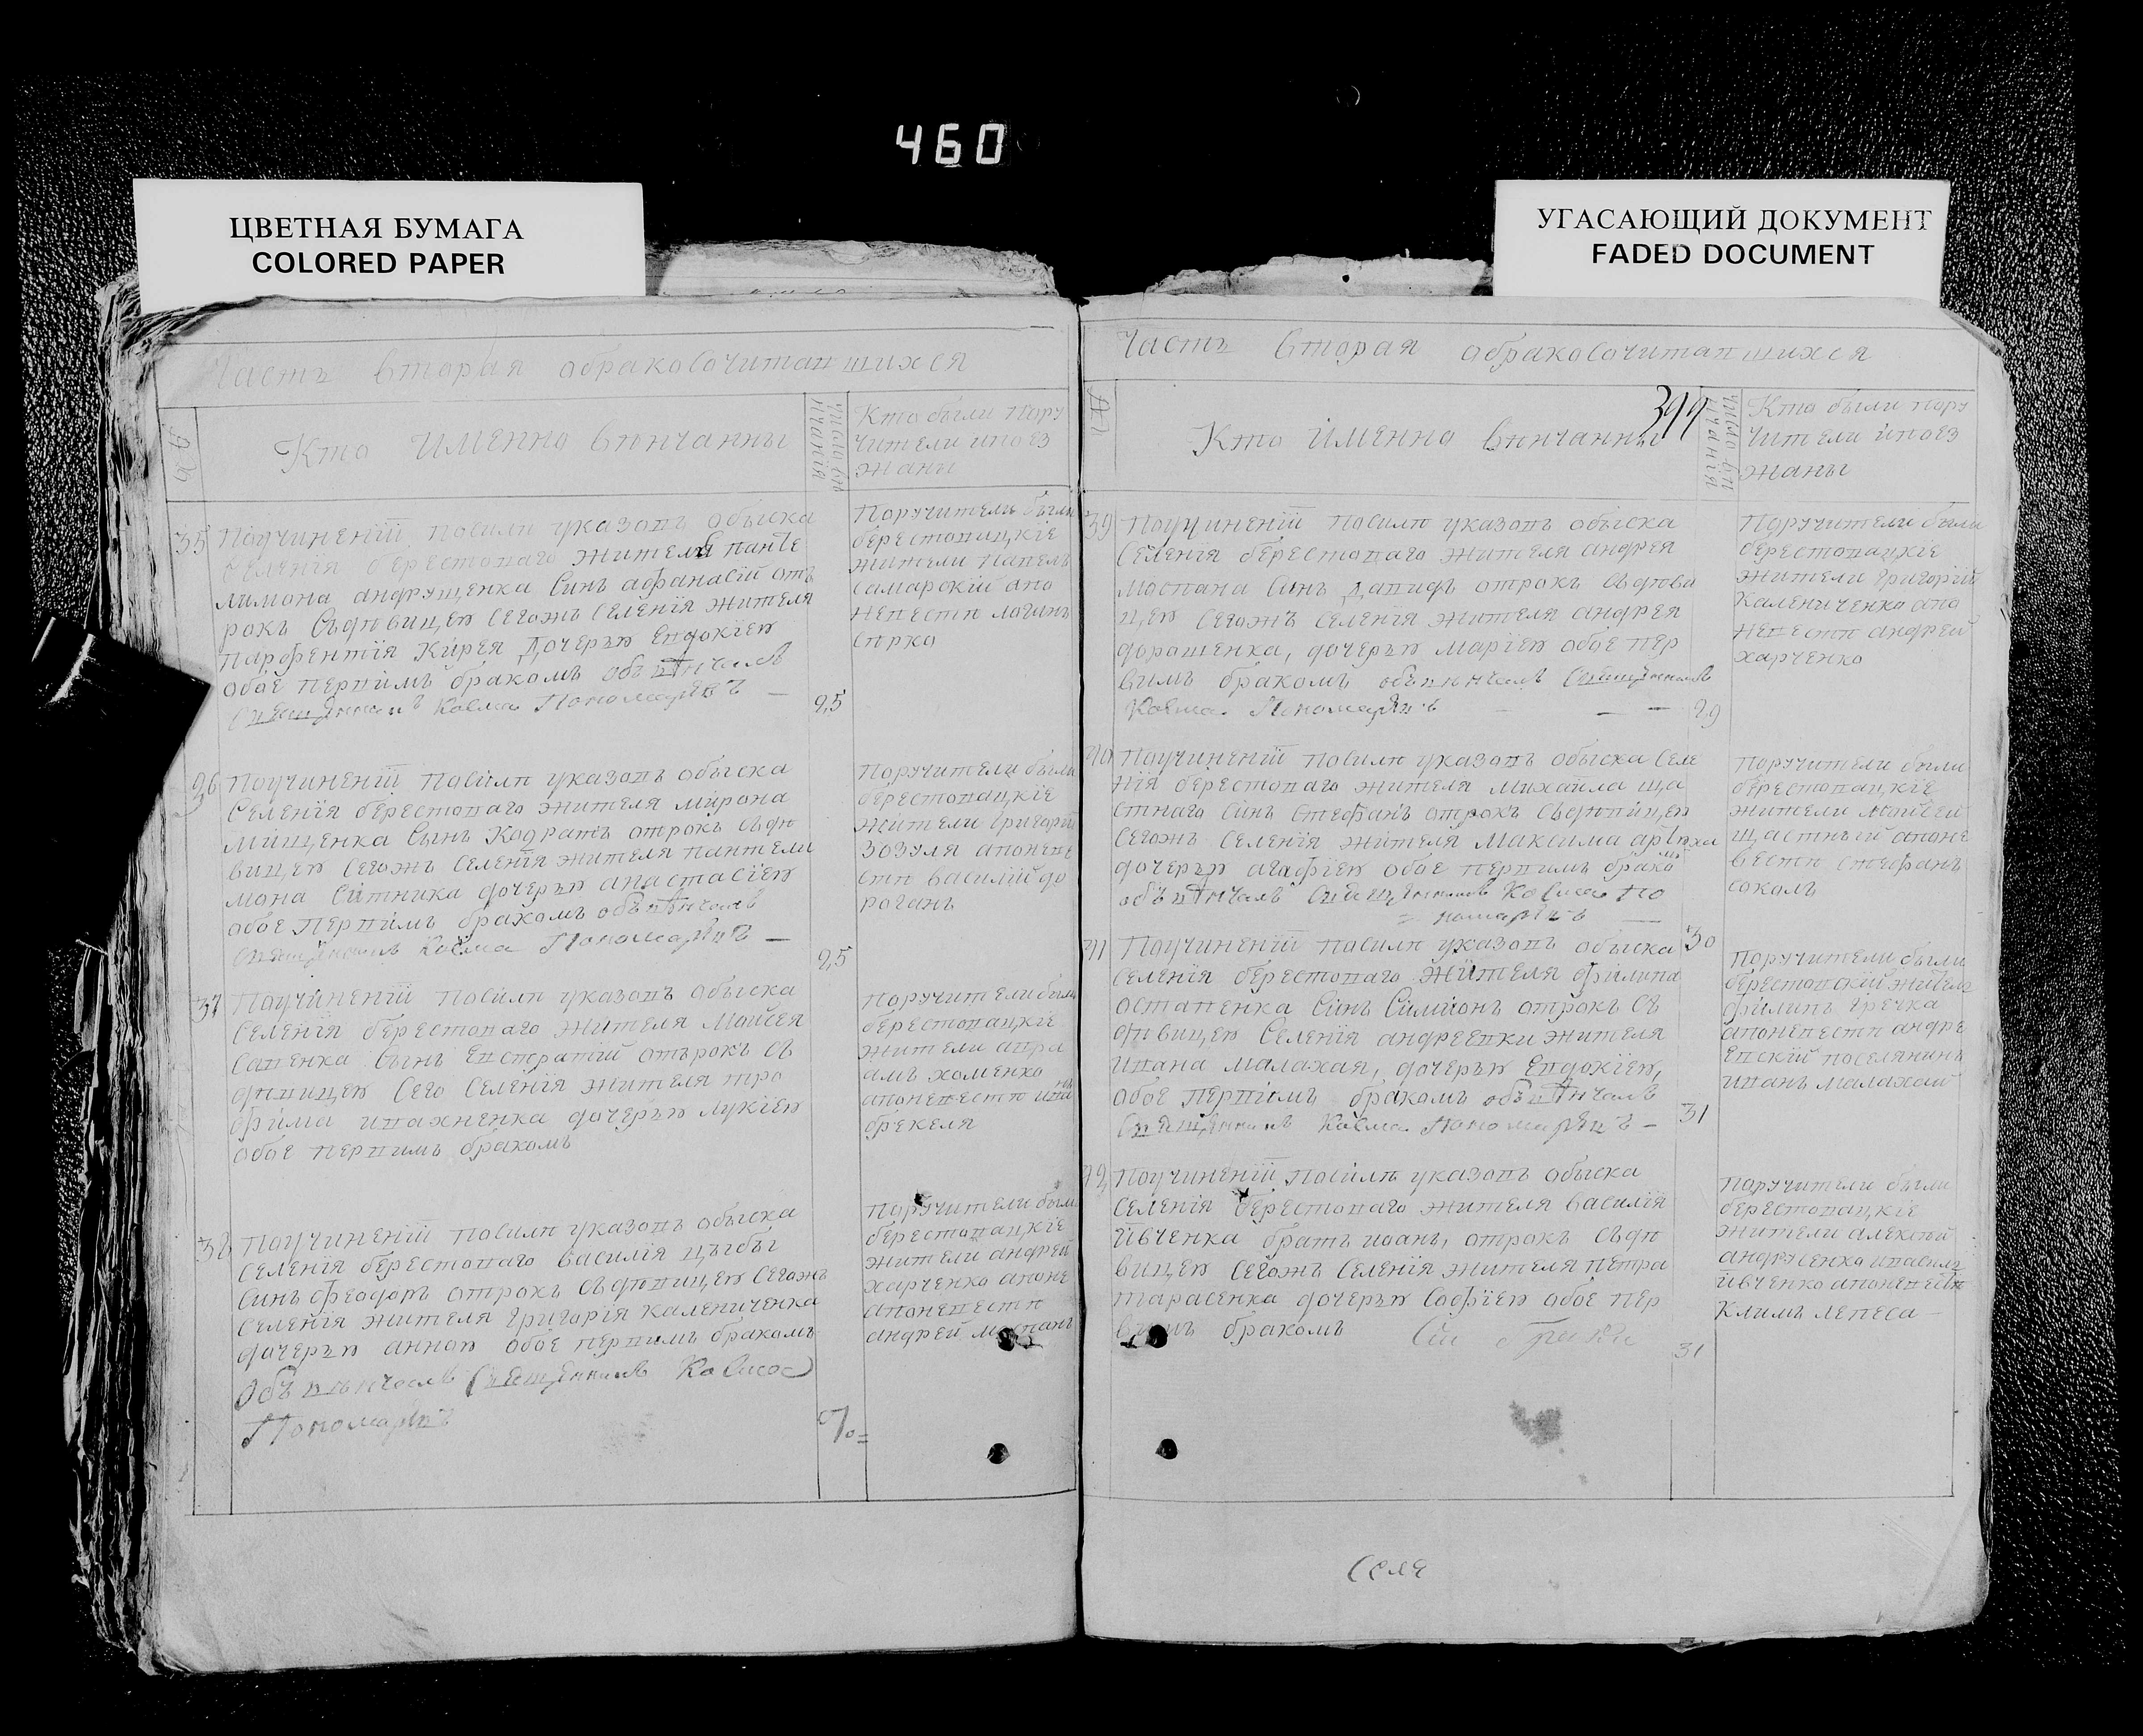 460
ЦВЕТНАЯ БУМАГА
COLORED PAPER
УГАСАЮЩИЙ ДОКУМЕНТ
FADED DOCUMENT
Часть вторая обракосочитавшихся
Кто именно вѣнчанны
Число вѣнчанія
Кто были пору
чители ипоез
жаны
35
Поучиненіи посилѣ указовъ обыска
селенія берестоваго жителя панте
лимона андрущенка синъ афанасій от
рокъ съдѣвицею сегожъ селенія жителя
парфентія Кирея дочерѣю Евдокіею
обое первимъ бракомъ обвѣнчалъ
Священникъ Косма Пономарѣвъ —
25
Поручители были
берестовацкіе
жители павелъ
самарскій апо
невестѣ логинъ
сѣрко
36
Поучиненіи посилѣ указовъ обыска
селенія берестоваго жителя мирона
мищенка сынъ Кодратъ отрокъ съдѣ
вицею сегожъ селенія жителя пантели
мона ситника дочерѣю анастасіею
обое первимъ бракомъ обвѣнчалъ
священникъ Косма Пономарѣвъ —
25
Поручители были
берестовацкіе
жители григорій
зозуля апоневе
стѣ василій до
рогань
37
Поучиненіи посилѣ указовъ обыска
селенія берестоваго жителя Мойсея
савенка сынъ Евстратій отърокъ съ
дѣвицею сего селенія жителя тро
фима ивахненка дочерѣю лукіею
обое первимъ бракомъ
Поручители были
берестовацкіе
жители авра
амъ хоменко
апоневестѣ ива
нъ
брекеля
38
Поучиненіи посилѣ указовъ обыска
селенія берестоваго василія цыбы
синъ феодоръ отрокъ съдѣвицею сегожъ
селенія жителя григорія калениченка
дочерѣю анною обое первимъ бракомъ
Объвѣнчалъ Священникъ Косма
Пономарѣвъ
Поручители были
берестовацкіе
жители андрей
харченко апоне
апоневестѣ
андрей моспанъ
Часть вторая обракосочитавшихся
399
Кто именно вѣнчанны
Число вѣнчанія
Кто были пору
чители ипоез
жаны
39
Поучиненіи посилѣ указовъ обыска
селенія берестоваго жителя андрея
моспана синъ давидъ отрокъ съдѣви
цею сегожъ селенія жителя андрея
дорошенка, дочерѣю маріею обое пер
вимъ бракомъ обвѣнчалъ священникъ
Косма Пономарѣвъ — —
29
Поручители были
берестовацкіе
жители григорій
Калениченко апо
невестѣ андрей
харченко
40
Поучиненіи посилѣ указовъ обыска селе
нія берестоваго жителя михаила ща
стнаго синъ стефанъ отрокъ съдѣвицею
сегожъ селенія жителя Максима
дочерѣю агафіею обое первимъ брако
мъ
объвѣнчалъ священникъ Косма По
= номарѣвъ —
30
Поручители были
берестовацкіе
жители мойсей
щастный апоне
вестѣ стефанъ
соколъ
41
Поучиненіи посилѣ указовъ обыска
селенія берестоваго жителя филипа
остапенка синъ Симіонъ отрокъ съ
дѣвицею селенія андреевки жителя
ивана малахая, дочерѣю Евдокіею,
обое первимъ бракомъ объвѣнчалъ
священникъ Косма Пономарѣвъ —
31
Поручители были
берестовскій житель
филипъ гречка
апоневестѣ андре
евскій поселянинъ
иванъ малахай
42
Поучиненіи посилѣ указовъ обыска
селенія берестоваго жителя василія
ївченка братъ иоанъ, отрокъ съдѣ
вицею сегожъ селенія жителя петра
тарасенка дочерѣю софіею обое пер
вимъ бракомъ
31
Поручители были
берестовацкіе
жители алексѣй
андрусенко ивасилі
ївченко апоневестѣ
Климъ лепеса —